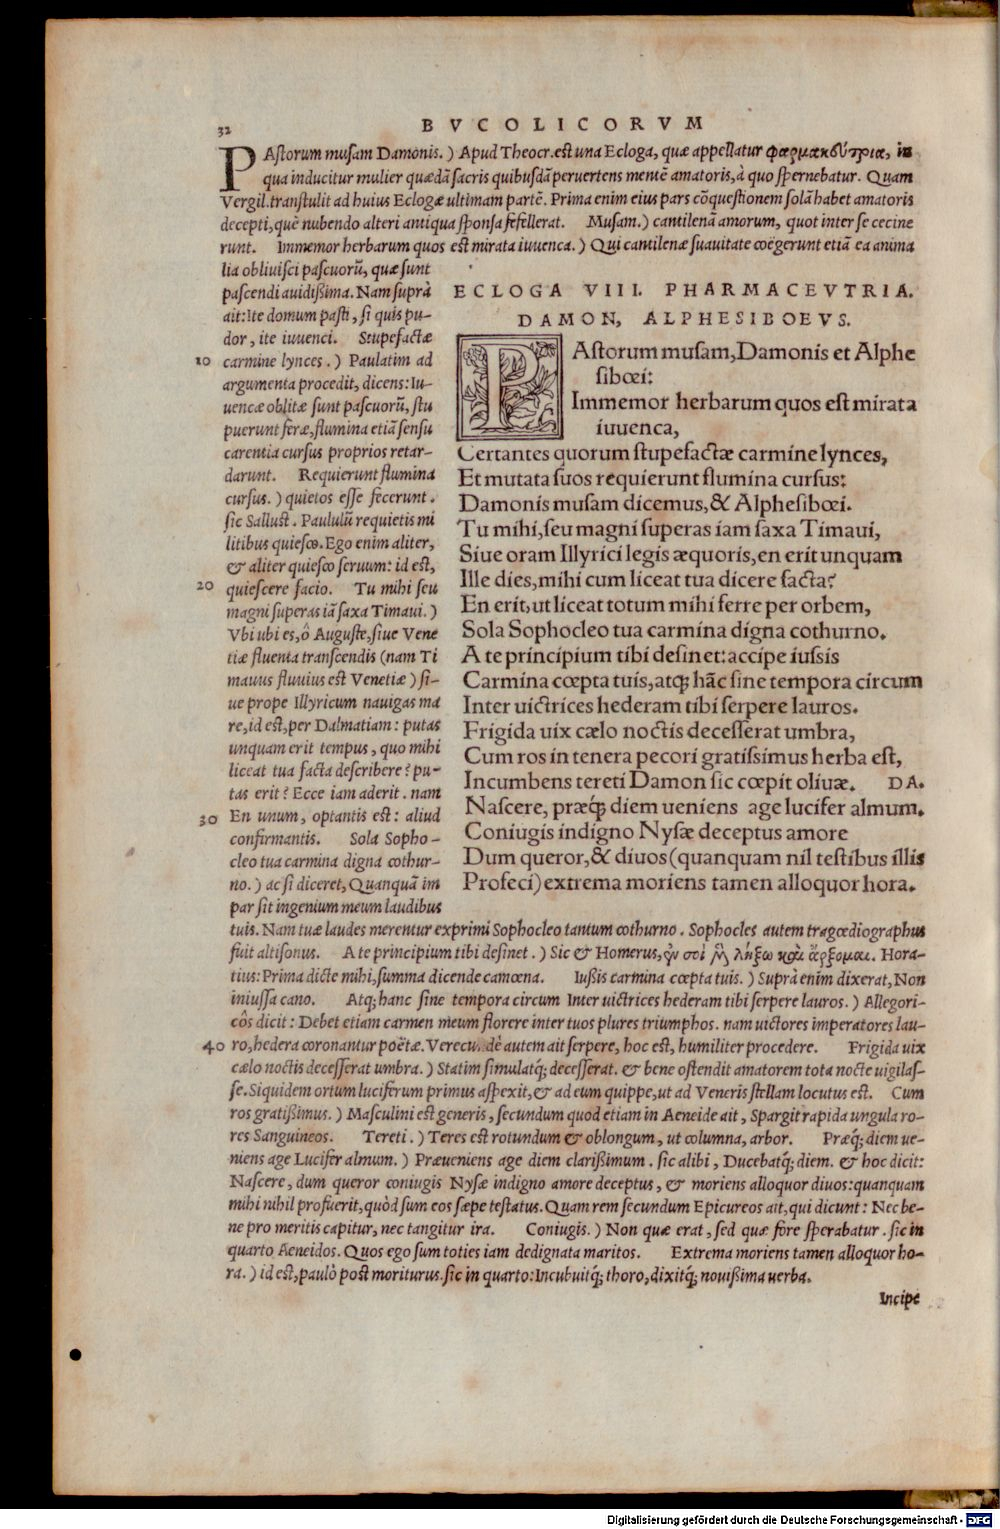 32
BVCOLICORVM
PAstorum musam Damonis.) Apud Theocr. est una Ecloga, quæ appellatur φαρμακεύτρια, in
qua inducitur mulier quædā sacris quibusdā peruertens mentē amatoris, à quo spernebatur. Quam
Vergil. transtulit ad huius Eclogæ ultimam partē. Prima enim eius pars cōquestionem solā habet amatoris
decepti, quē nubendo alteri antiqua sponsa fefellerat. Musam.) cantilenā amorum, quot inter se cecine
runt. Immemor herbarum quos est mirata iuuenca.) Qui cantilenæ suauitate coëgerunt etiā ea anima
lia obliuisci pascuorū, quæ sunt
pascendi auidißima. Nam suprà
ait: Ite domum pasti, si quis pu-
dor, ite iuuenci. Stupefactæ
10 carmine lynces.) Paulatim ad
argumenta procedit, dicens: Iu-
uencæ oblitæ sunt pascuorū, stu
puerunt feræ, flumina etiā sensu
carentia cursus proprios retar-
darunt. Requierunt flumina
cursus.) quietos esse fecerunt.
sic Sallust. Paululū requietis mi
litibus quiesco. Ego enim aliter,
& aliter quiesco seruum: id est,
20 quiescere facio. Tu mihi seu
magni superas iā saxa Timaui.)
Vbi ubi es, ô Auguste, siue Vene
tiæ fluenta transcendis (nam Ti
mauus fluuius est Venetiæ) si-
ue prope Illyricum nauigas ma
re, id est, per Dalmatiam: putas
unquam erit tempus, quo mihi
liceat tua facta describere? pu-
tas erit? Ecce iam aderit. nam
30 En unum, optantis est: aliud
confirmantis. Sola Sopho-
cleo tua carmina digna cothur-
no.) ac si diceret, Quanquā im
par sit ingenium meum laudibus
ECLOGA VIII. PHARMACEVTRIA.
DAMON, ALPHESIBOEVS.
PAstorum musam, Damonis et Alphe
sibœi:
Immemor herbarum quos est mirata
iuuenca,
Certantes quorum stupefactæ carmine lynces,
Et mutata suos requierunt flumina cursus:
Damonis musam dicemus, & Alphesibœi.
Tu mihi, seu magni superas iam saxa Timaui,
Siue oram Illyrici legis æquoris, en erit unquam
Ille dies, mihi cum liceat tua dicere facta?
En erit, ut liceat totum mihi ferre per orbem,
Sola Sophocleo tua carmina digna cothurno.
A te principium tibi desinet: accipe iussis
Carmina cœpta tuis, atq; hāc sine tempora circum
Inter uictrices hederam tibi serpere lauros.
Frigida uix cælo noctis decesserat umbra,
Cum ros in tenera pecori gratissimus herba est,
Incumbens tereti Damon sic cœpit oliuæ. DA.
Nascere, præq; diem ueniens age lucifer almum.
Coniugis indigno Nysæ deceptus amore
Dum queror, & diuos (quanquam nil testibus illis
Profeci) extrema moriens tamen alloquor hora.
tuis. Nam tuæ laudes merentur exprimi Sophocleo tantum cothurno. Sophocles autem tragœdiographus
fuit altisonus. A te principium tibi desinet.) Sic & Homerus, ἐν σοὶ μὲν λήξω καὶ ἄρξομαι. Hora-
tius: Prima dicte mihi, summa dicende camœna. Iußis carmina cœpta tuis.) Suprà enim dixerat, Non
iniussa cano. Atq; hanc sine tempora circum Inter uictrices hederam tibi serpere lauros.) Allegori-
cōs dicit: Debet etiam carmen meum florere inter tuos plures triumphos. nam uictores imperatores lau-
40 ro, hedera coronantur poëtæ. Verecundè autem ait serpere, hoc est, humiliter procedere. Frigida uix
cælo noctis decesserat umbra.) Statim simulatq; decesserat. & bene ostendit amatorem tota nocte uigilas-
se. Siquidem ortum luciferum primus aspexit, & ad eum quippe, ut ad Veneris stellam locutus est. Cum
ros gratißimus.) Masculini est generis, secundum quod etiam in Aeneide ait, Spargit rapida ungula ro-
res Sanguineos. Tereti.) Teres est rotundum & oblongum, ut columna, arbor. Præq; diem ue-
niens age Lucifer almum.) Præueniens age diem clarißimum. sic alibi, Ducebatq; diem. & hoc dicit:
Nascere, dum queror coniugis Nysæ indigno amore deceptus, & moriens alloquor diuos: quanquam
mihi nihil profuerit, quòd sum eos sæpe testatus. Quam rem secundum Epicureos ait, qui dicunt: Nec be-
ne pro meritis capitur, nec tangitur ira. Coniugis.) Non quæ erat, sed quæ fore sperabatur. sic in
quarto Aeneidos. Quos ego sum toties iam dedignata maritos. Extrema moriens tamen alloquor ho-
ra.) id est, paulò post moriturus. sic in quarto: Incubuitq; thoro, dixitq; nouißima uerba.
Incipe
Digitalisierung gefördert durch die Deutsche Forschungsgemeinschaft - DFG